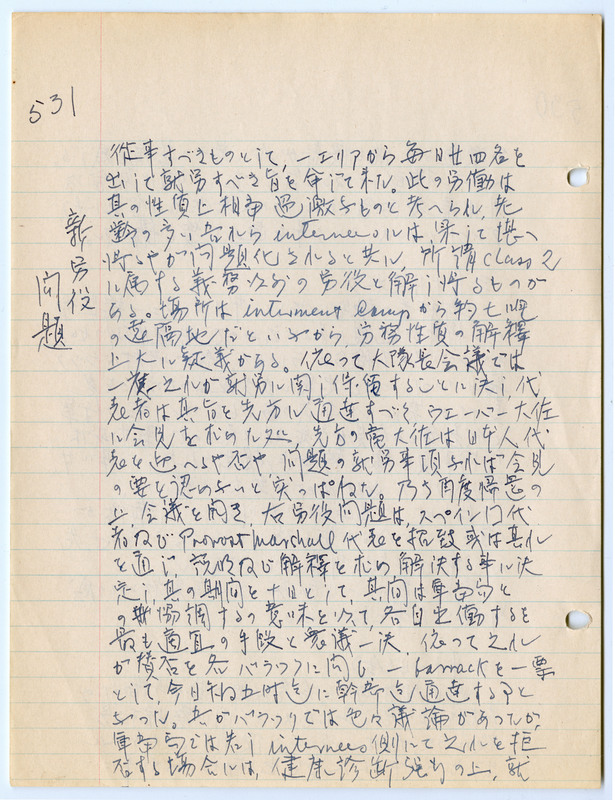 531
新労役
問題
従事すべきものとして、一エリアから毎日廿四名を
出して就労すべき旨を命じて来た。此の労働は
其の性質上相当過激なものと考へられ、老
齢の多い吾れら interneeルは果して堪へ
得るやが問題化されると共に、所謂 class 2
に属する義務以外の労役と解し得るものが
ある。場所は interment camp から約七哩
の遠隔地だといふから、労務性質の解釋
上大に疑義がある。依って大隊長会議では
一應之れが就労に関し保留することに決し、代
表者は其旨を先方に通達すべく、ウエーバー大佐
に会見を求めた処、先方の大佐は日本人代
表を迎へるや否や、問題の就労事項なれば会見
の要を認めないと突っぱねた。乃ち再度帰営の
上、会議を開き、右労役問題は、スペイン代
者及び Provost Marshall 代表を招致或は其れ
を通じ、説明及び解釋を求め解決する事に決
定し、其の期間を十日として、其間は軍当局と
の協調する意味を以て、各自出働するを
最も適宜の手段と衆議一決、依って之れ
が賛否を各バラックに問ひ、一 barrack を一票
として、今日五時迄に幹部迄通達する事と
なった。我がバラックでは色々議論があったが、
軍当局では若し internees 側にて之れを拒
否する場合には、健康診断の上、就